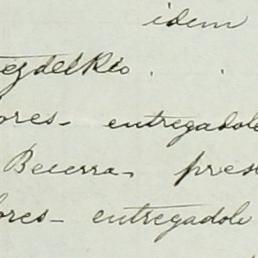 idem
ez del Rio . .
ores - entregadole
Becerra - pres
ores - entregadole